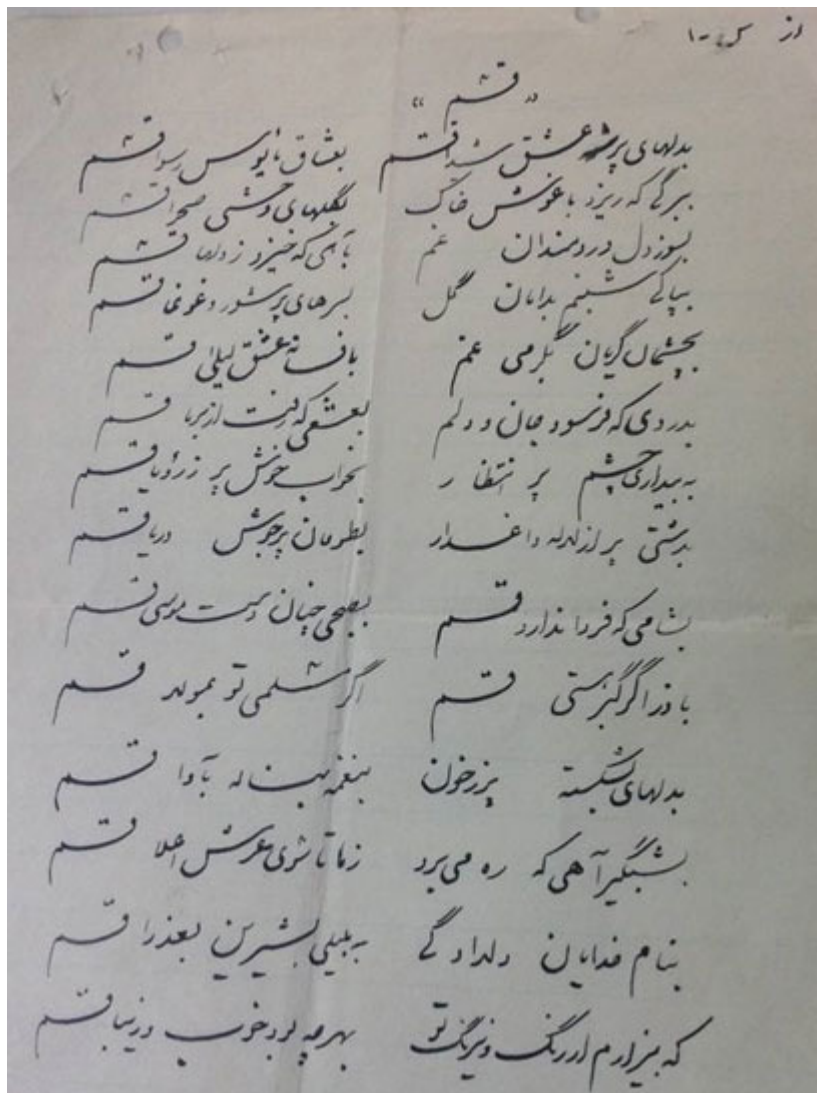 از
« قسم »
بدلهای پر عشق شیدا قسم بعشاق مأیوس رسوا قسم
ببرگی که ریزد باغوش خاک بگلهای وحشی صحرا قسم
بسوز دل دردمندان غم بآهی که خیزد ز دلها قسم
بپاکی شبنم بدامان گل بسرهای پر شور و غوغا قسم
بچشمان گریان بگرمی غم بافسانه عشق لیلی قسم
بدردی که فرسود جان و دلم بعشقی که رفت از بر ما قسم
به بیداری چشم پر انتظار بخواب خوش پر ز رؤیا قسم
بدشتی پر از لاله داغدار بطوفان پرجوش دریا قسم
بشامی که فردا ندارد قسم بصبحی چنان دست موسی قسم
باوز اگر گبر هستی قسم اگر مسلمی تو بمولا قسم
بدلهای بشکسته پر ز خون بنغمه بناله بآوا قسم
بشبگیر آهی که ره می برد ز ما تا سوی عرش اعلا قسم
بنام خدایان دلدادگی به لیلی بشیرین بعذرا قسم
که بیزارم از رنگ و نیرنگ تو بهر چه بود خوب و زیبا قسم